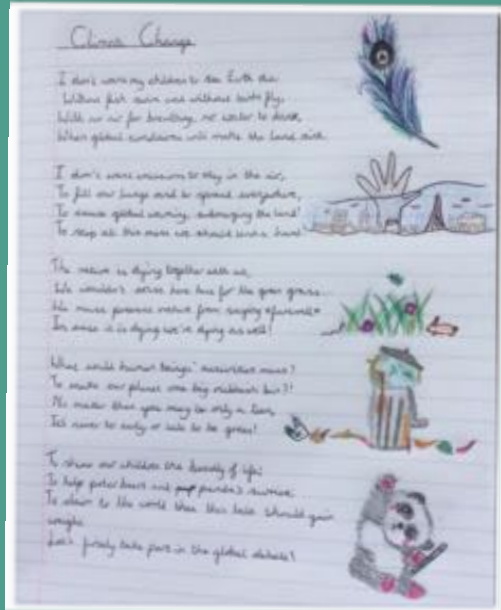 Climate Change
I don't want my children to see Earth die
Without fish swim and without birds fly,
With no air for breathing, no water to drink,
When global sundowns will make the land sink.
I don't want emissions to stay in the air,
To fill our lungs and to spread everywhere,
To cause global warming, submerging the land!
To stop all this mess we should lend a hand.
The nature is dying together with us,
We wouldn't have for the green grass...
We must preserve nature from saying "farewell"
In case it is dying we're dying as well!
What would human beings' mean?
To make our planet one big rubbish bin?!
No matter that you may be only a teen,
It's never to early or late to be green!
To show our children the beauty of life;
To help polar bears and panda's survive
To to the world that this should gain
weight
Let's take part in the global debate!